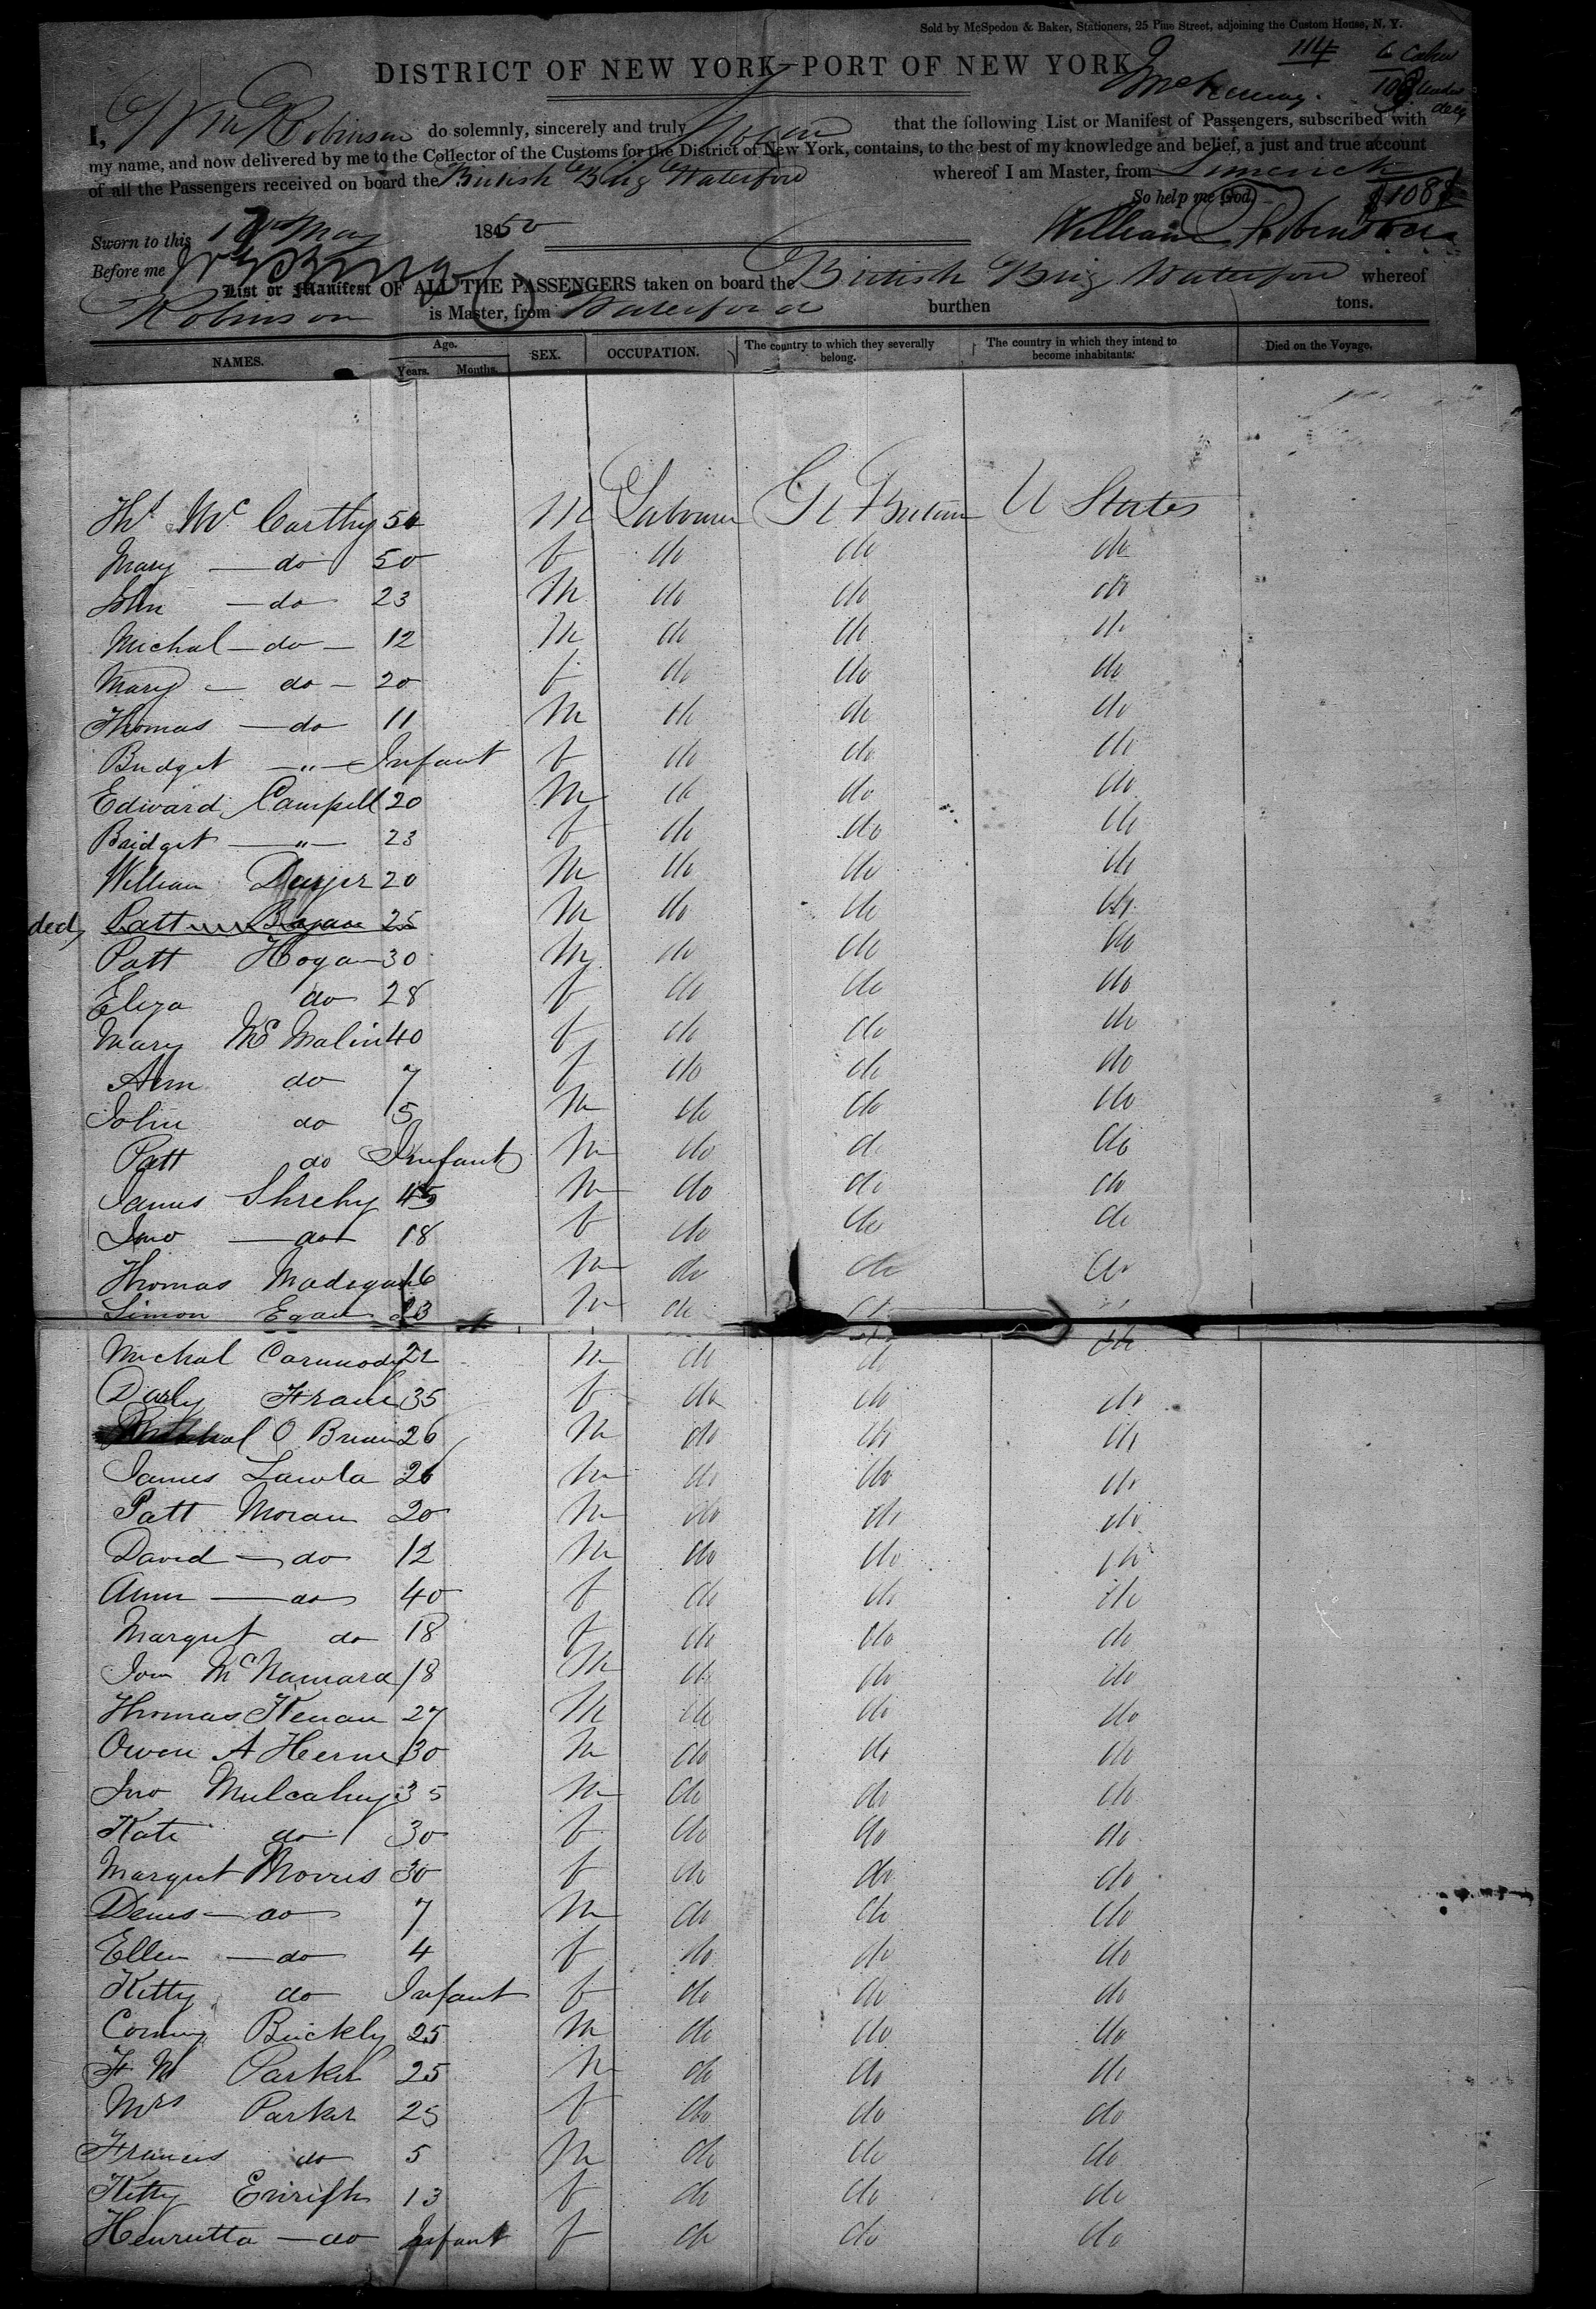 Sold by McSpedon & Baker, Stationers, 25 Pine Street, adjoining the Custom House, N. Y.
114 6
DISTRICT OF NEW YORK—PORT OF NEW YORK
I, Wm Robinson do solemnly, sincerely and truly that the following List or Manifest of Passengers, subscribed with
my name, and now delivered by me to the Collector of the Customs for the District of New York, contains, to the best of my knowledge and belief, a just and true account
of all the Passengers received on board the British Brig Waterford whereof I am Master, from Limerick
So help me God. $108
Sworn to this May 1850 William Robinson
Before me
List or Manifest OF ALL THE PASSENGERS taken on board the British Brig Waterford whereof
Robinson is Master, from Waterford burthen tons.
NAMES. Age. Years. Months. SEX. OCCUPATION. The country to which they severally belong. The country in which they intend to become inhabitants. Died on the Voyage.
Tht Mc Carthy 50 M Labourer Gt Britain U States
Mary — do 50 f do do do
John — do 23 M do do do
Michal — do — 12 M do do do
Mary — do — 20 f do do do
Thomas — do 11 M do do do
Bridget — " — Infant f do do do
Edward Campell 20 M do do do
Bridget — " — 23 f do do do
William Dwyer 20 M do do do
ded Patt 25 M do do do
Patt Hogan 30 M do do do
Eliza do 28 f do do do
Mary Mc Malin 40 f do do do
Ann do 7 f do do do
John do 5 M do do do
Patt do Infant M do do do
James Shrehy 45 M do do do
Jno — do 18 f do do do
Thomas Madegan 16 M do do do
Simon Egan 23 M do do
Michal Carmody 22 M do do do
Darly 35 f do do do
Michal O Brien 26 M do do do
James Lawla 26 M do do do
Patt Moran 20 M do do do
David — do 12 M do do do
Ann — do 40 f do do do
Margret do 18 f do do do
Jno McNamara 18 M do do do
Thomas Kenan 27 M do do do
Owen A Herne 30 M do do do
Jno Mulcahy 35 M do do do
Kate do 30 f do do do
Margret Morris 30 f do do do
Denis — do 7 M do do do
Ellen — do 4 f do do do
Kitty do Infant f do do do
Buckly 25 M do do do
Parker 25 M do do do
Mrs Parker 25 f do do do
Francis do 5 M do do do
Kitty Enrifh 13 f do do do
Henrietta — do Infant f do do do